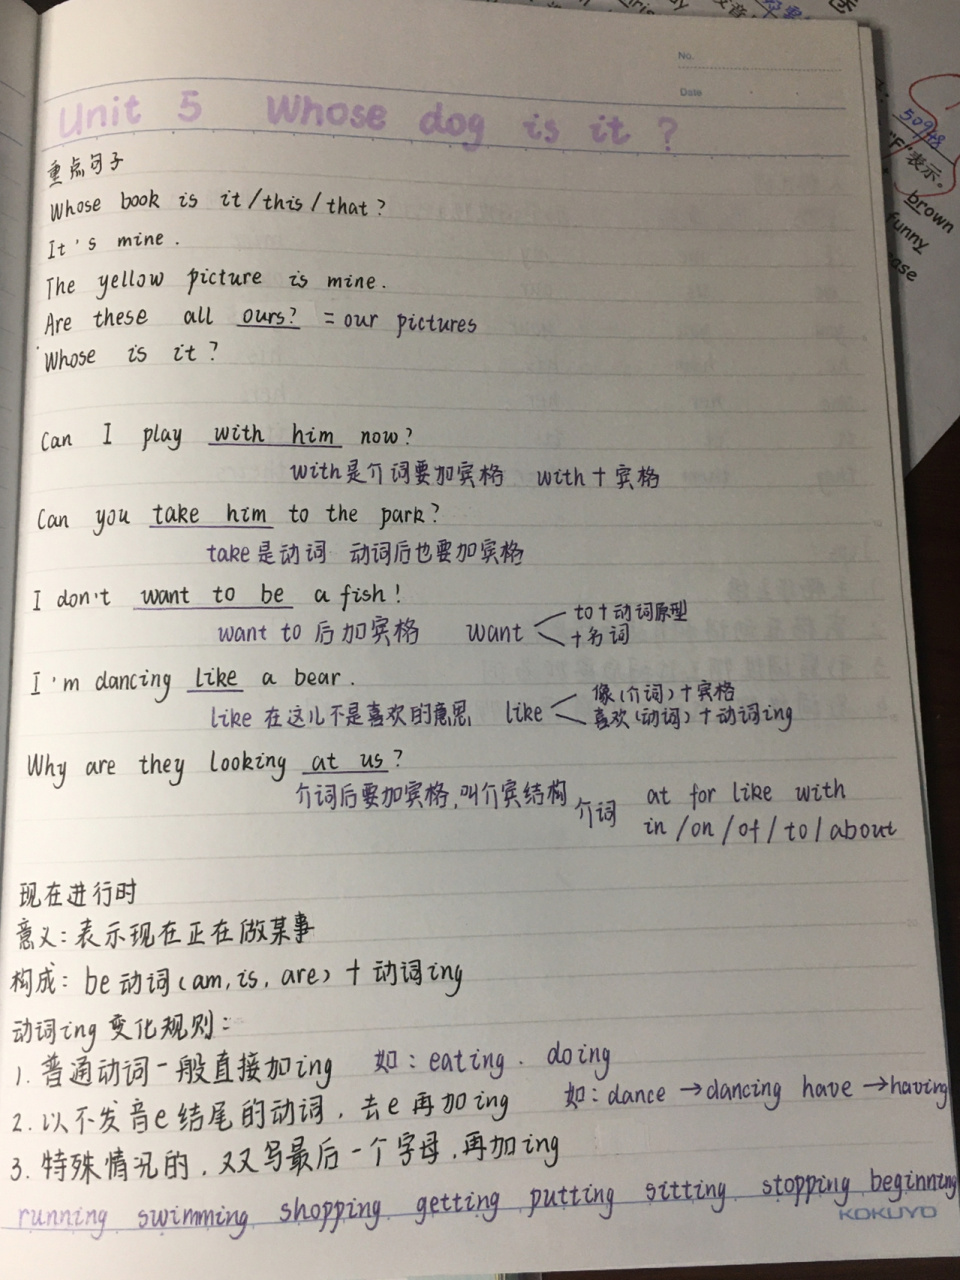 No.
Date
Unit 5 Whose dog is it?
重点句子
Whose book is it/this/that?
It's mine.
The yellow picture is mine.
Are these all ours? = our pictures
Whose is it?
Can I play with him now?
with是介词要加宾格 with+宾格
Can you take him to the park?
take是动词 动词后也要加宾格
I don't want to be a fish!
want to 后加宾格 want to+动词原型
+名词
I'm dancing like a bear.
like 在这儿不是喜欢的意思 like 像(介词)+宾格
喜欢(动词)+动词ing
Why are they looking at us?
介词后要加宾格,叫介宾结构
介词 at for like with
in/on/of/to/about
现在进行时
意义:表示现在正在做某事
构成:be动词(am,is,are)+动词ing
动词ing变化规则:
1.普通动词一般直接加ing 如:eating.doing
2.以不发音e结尾的动词,去e再加ing 如:dance→dancing have→having
3.特殊情况的,双写最后一个字母,再加ing
running swimming shopping getting putting sitting stopping beginning
KOKUYO
"F"表示。
brown
funny